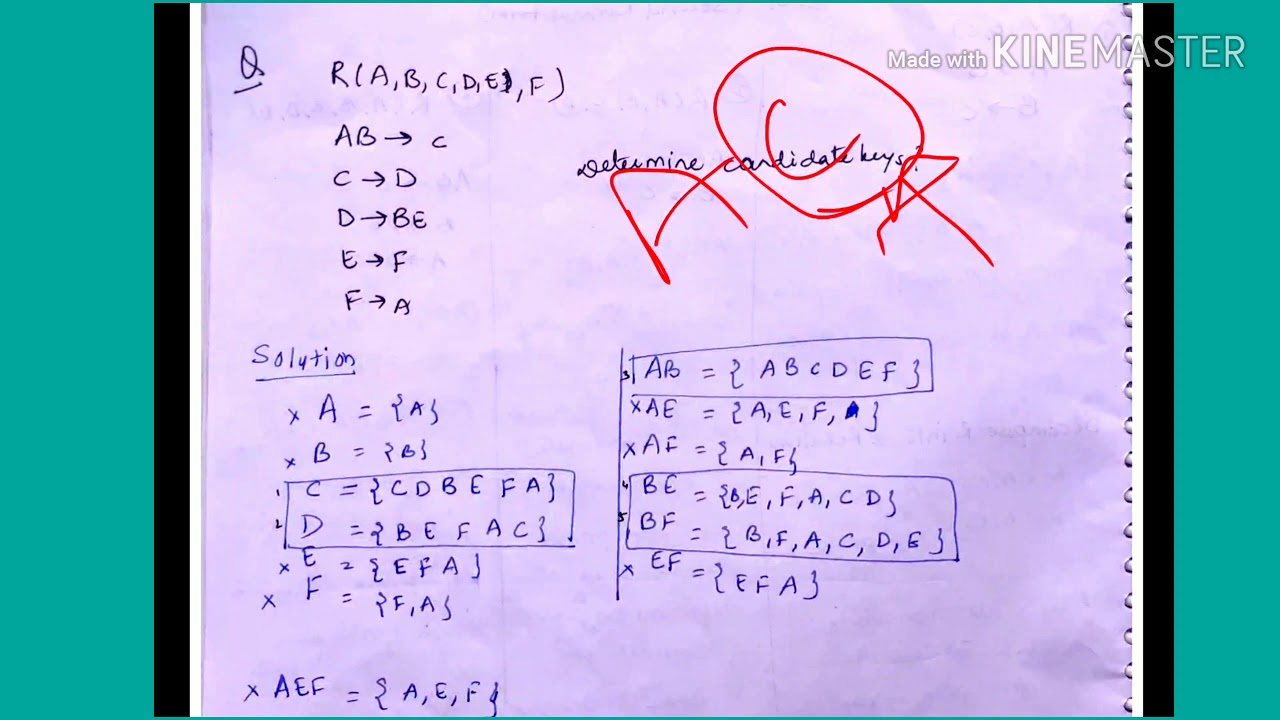 Made with KINEMASTER
Q
R(A, B, C, D, E, F)
AB → C
C → D
D → BE
E → F
F → A
Determine candidate keys?
Solution
x A = {A}
x B = {B}
1 C = {C D B E F A}
2 D = {B E F A C}
x E = {E F A}
x F = {F, A}
3 AB = {A B C D E F}
x AE = {A, E, F, A}
x AF = {A, F}
4 BE = {B, E, F, A, C D}
5 BF = {B, F, A, C, D, E}
x EF = {E F A}
x AEF = {A, E, F}